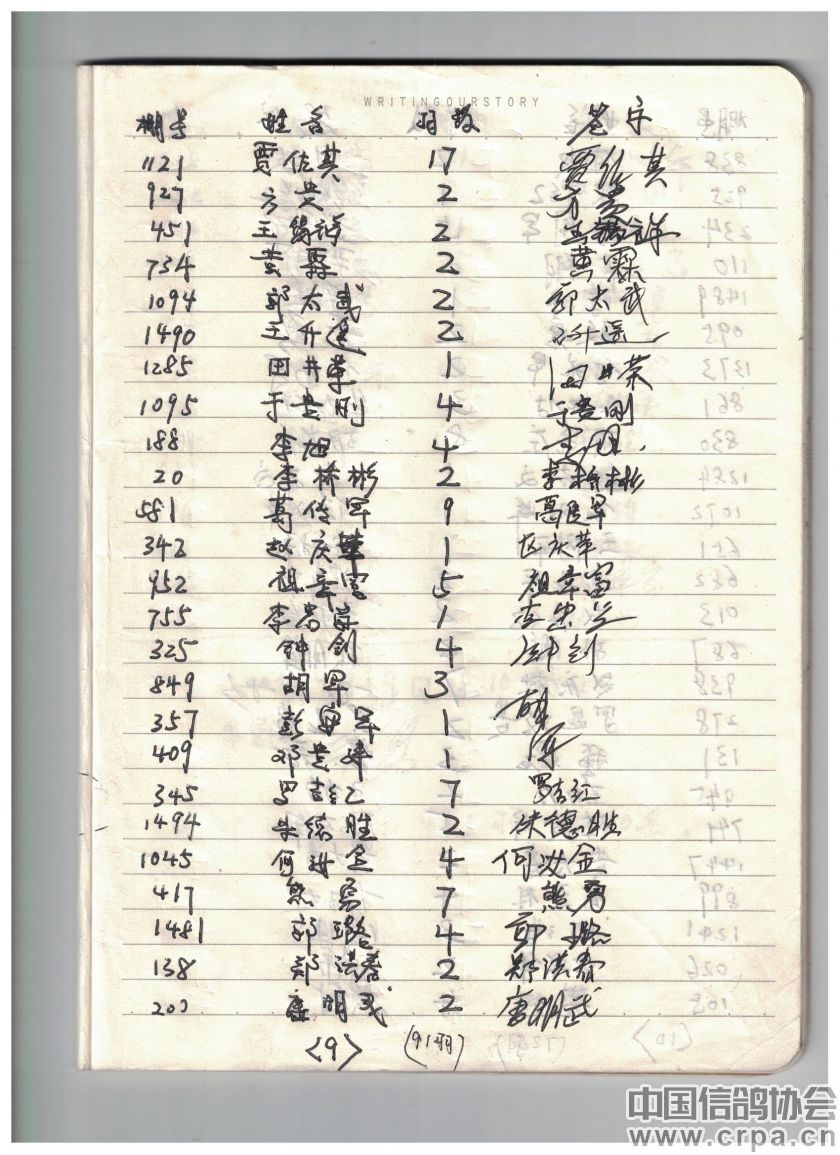 WRITINGOURSTORY
棚号 姓名 羽数 签字
1121 贾佐其 17 贾佐其
927 方贵 2 方贵
451 王锡祥 2 王锡祥
734 黄霖 2 黄霖
1094 郭太武 2 郭太武
1490 王升遥 2 王升遥
1285 田井荣 1 田井荣
1095 于贵刚 4 于贵刚
188 李旭 4 李旭
20 李桥彬 2 李桥彬
581 葛传军 9
342 赵庆华 1 赵庆华
952 祖幸富 5 祖幸富
755 李忠 1 李忠
325 钟剑 4 钟剑
849 胡军 3 胡军
357 彭军 1
409 邓贵峰 1
345 罗吉红 7 罗吉红
1494 朱德胜 2 朱德胜
1045 何汝金 4 何汝金
417 熊勇 7 熊勇
1481 郭璐 4 郭璐
138 郑洪春 2 郑洪春
唐明武 2 唐明武
<9> (91羽)
中国信鸽协会
www.crpa.cn